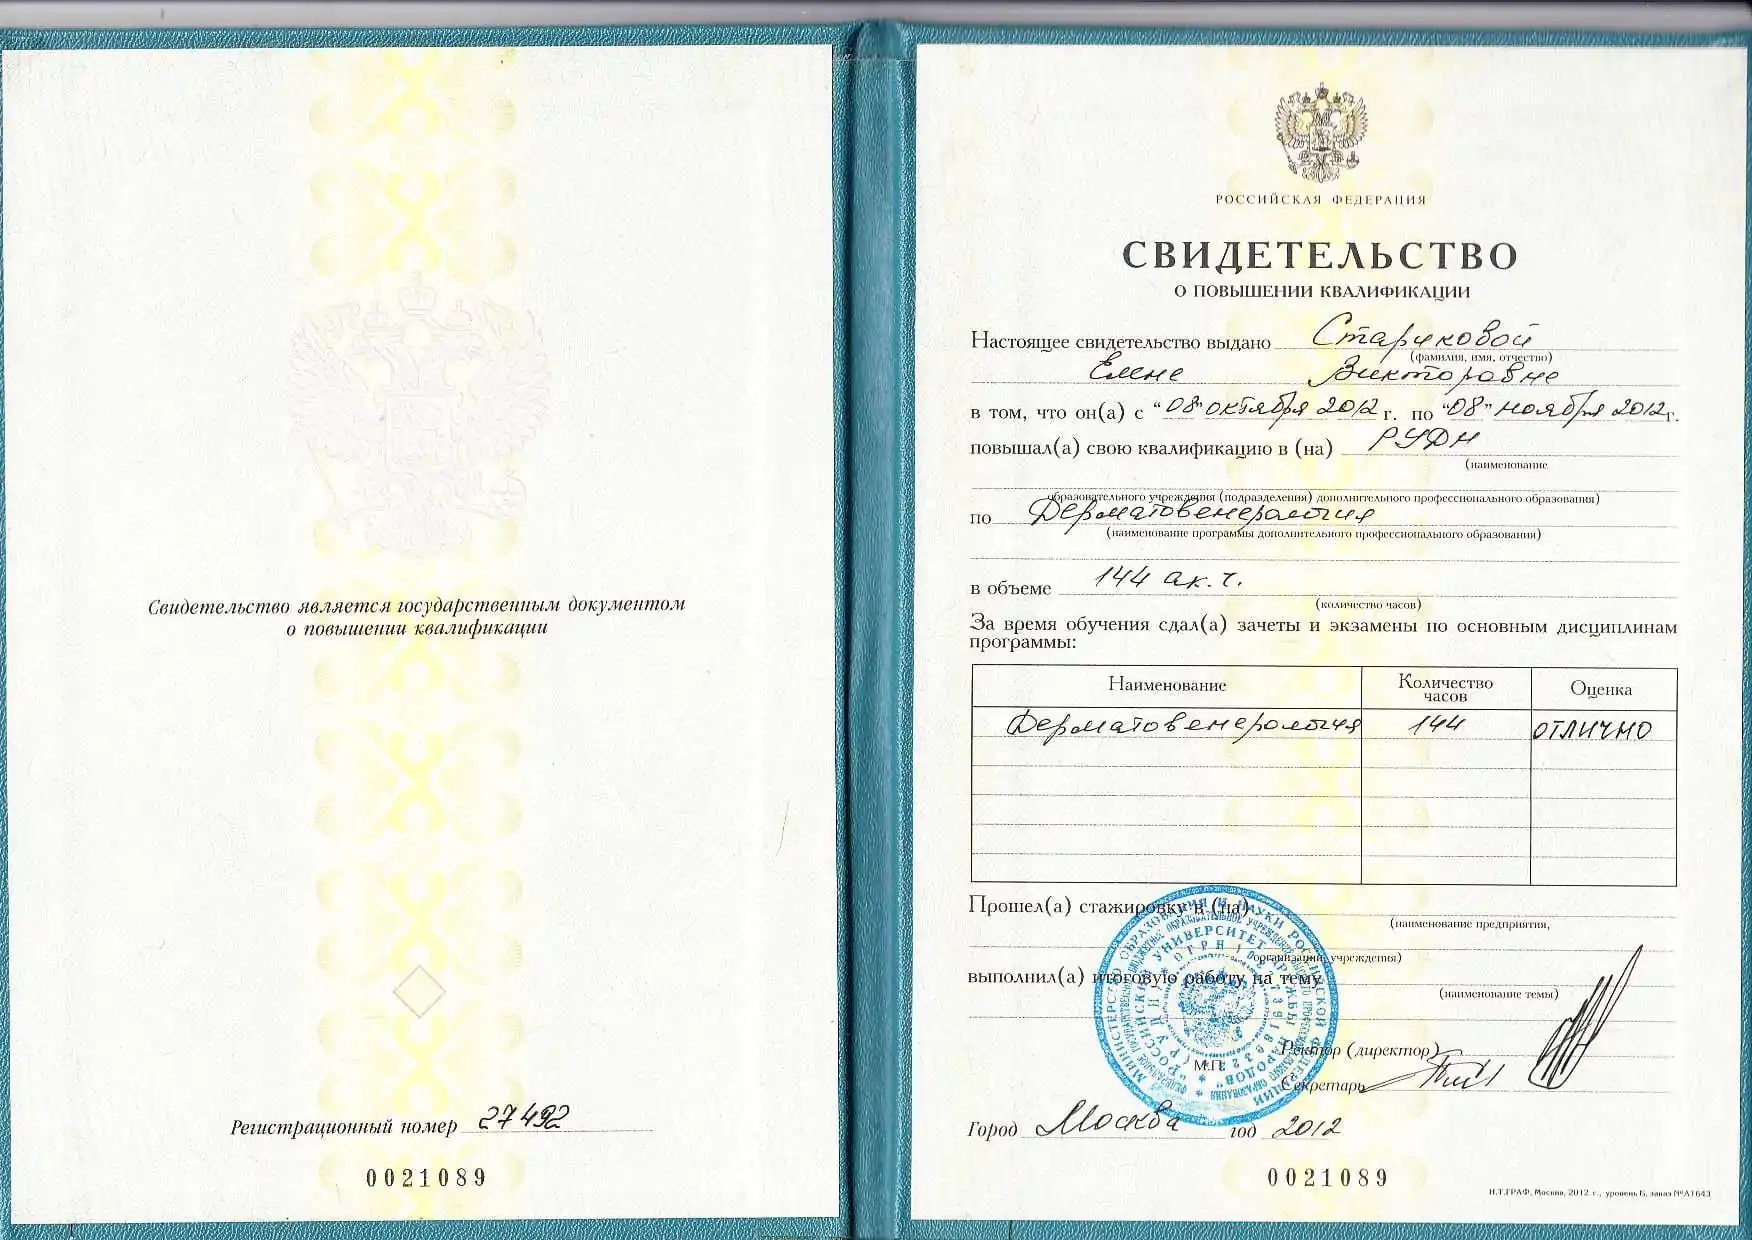 Свидетельство является государственным документом
о повышении квалификации
Регистрационный номер 27492
0021089
РОССИЙСКАЯ ФЕДЕРАЦИЯ
СВИДЕТЕЛЬСТВО
О ПОВЫШЕНИИ КВАЛИФИКАЦИИ
Настоящее свидетельство выдано Стариковой
(фамилия, имя, отчество)
Елене Викторовне
в том, что он(а) с "08" октября 2012 г. по "08" ноября 2012 г.
повышал(а) свою квалификацию в (на) РУДН
(наименование
образовательного учреждения (подразделения) дополнительного профессионального образования)
по Дерматовенерология
(наименование программы дополнительного профессионального образования)
в объеме 144 ак. ч.
(количество часов)
За время обучения сдал(а) зачеты и экзамены по основным дисциплинам
программы:
Наименование Количество часов Оценка
Дерматовенерология 144 ОТЛИЧНО
Прошел(а) стажировку в (на)
(наименование предприятия,
организации, учреждения)
выполнил(а) итоговую работу на тему
(наименование темы)
Ректор (директор)
М.П.
Секретарь
Город Москва год 2012
0021089
Н.Т.ГРАФ, Москва, 2012 г., уровень Б, заказ №А1643